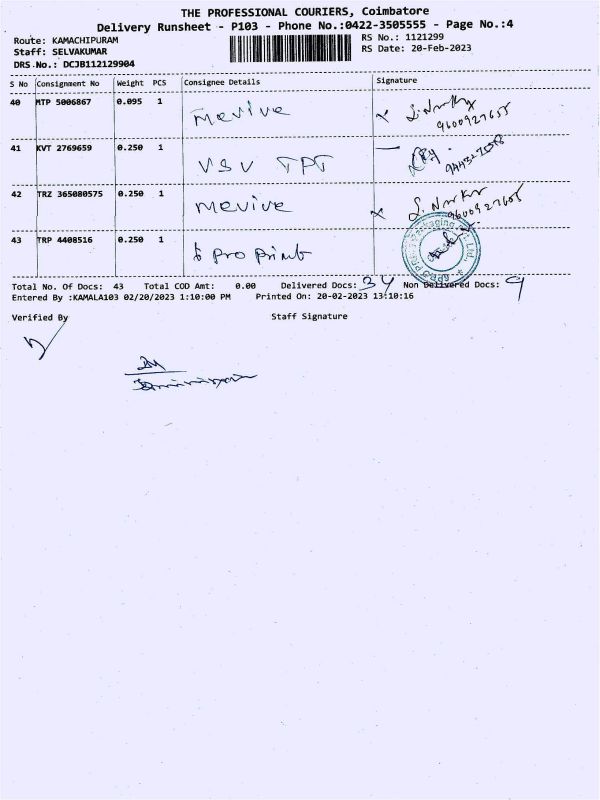 THE PROFESSIONAL COURIERS, Coimbatore
Delivery Runsheet - P103 - Phone No.:0422-3505555 - Page No.:4
Route: KAMACHIPURAM
RS No.: 1121299
Staff: SELVAKUMAR
RS Date: 20-Feb-2023
DRS No.: DCJB112129904
S No Consignment No Weight PCS Consignee Details Signature
40 MTP 5006867 0.095 1 Mevive
9600927655
41 KVT 2769659 0.250 1 VSV TPT
42 TRZ 365080575 0.250 1 Mevive
9600927655
43 TRP 4408516 0.250 1 Pro Print
Total No. Of Docs: 43 Total COD Amt: 0.00 Delivered Docs: 34 Non Delivered Docs: 9
Entered By :KAMALA103 02/20/2023 1:10:00 PM Printed On: 20-02-2023 13:10:16
Verified By Staff Signature